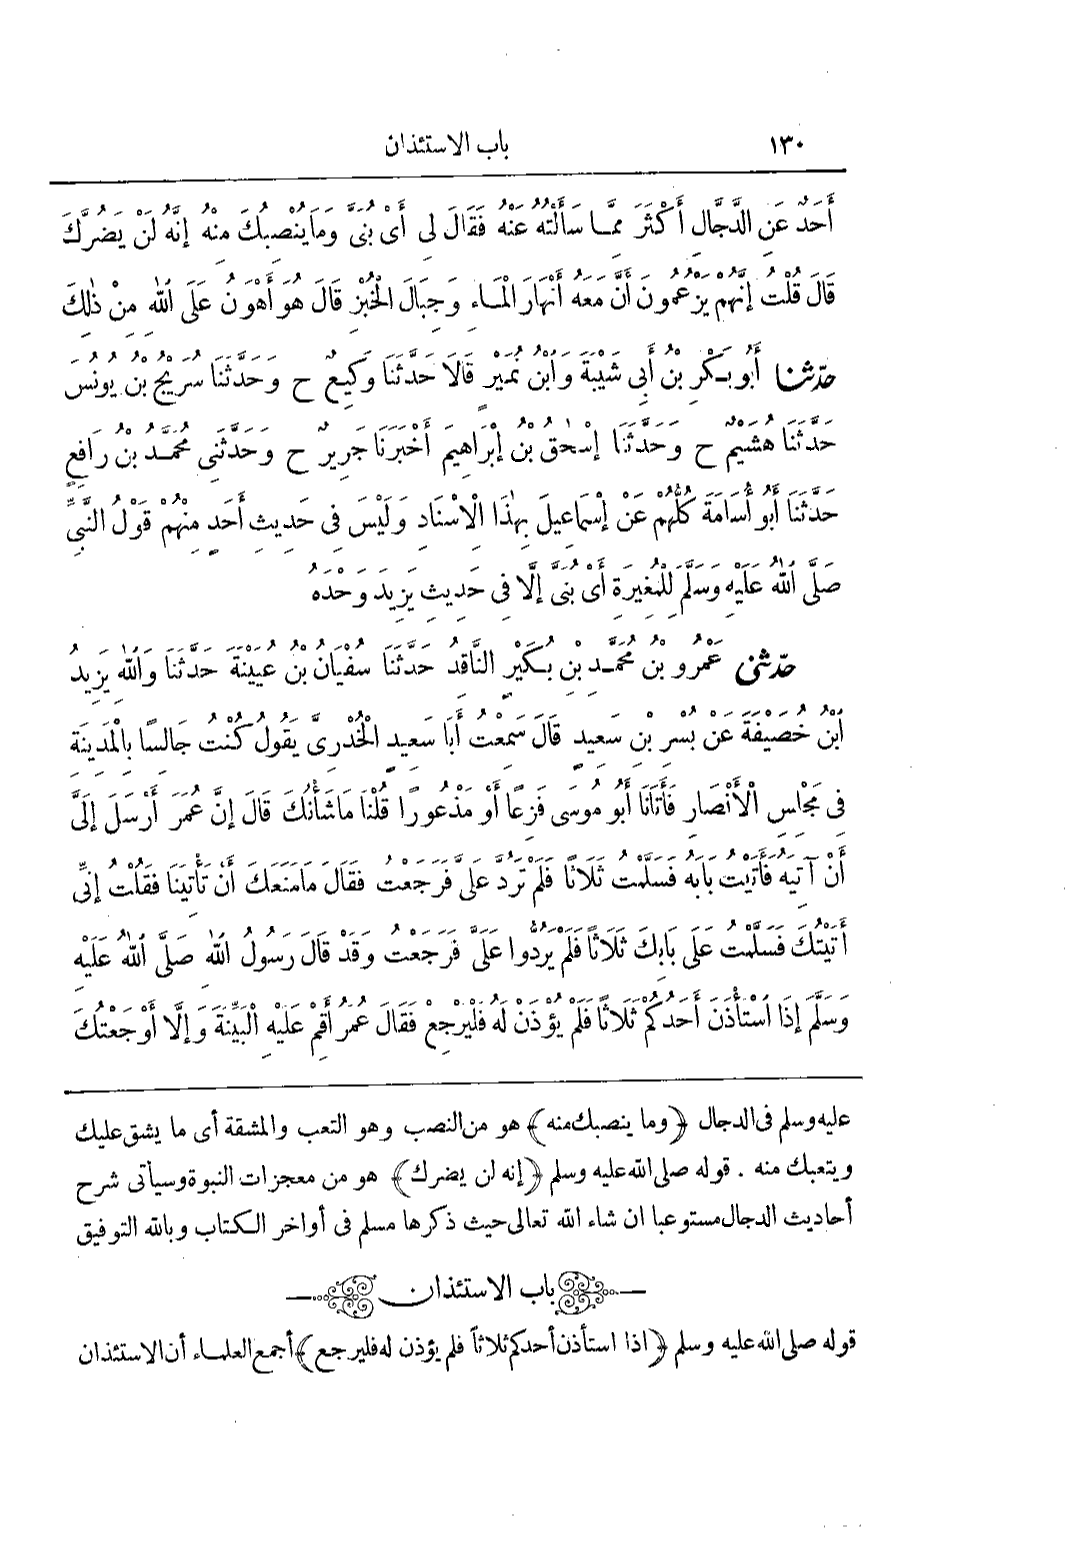 ١٣٠ باب الاستئذان
أَحَدٌ عَنِ الدَّجَّالِ أَكْثَرَ مِمَّا سَأَلْتُهُ عَنْهُ فَقَالَ لِى أَىْ بُنَىَّ وَمَا يُنْصِبُكَ مِنْهُ إِنَّهُ لَنْ يَضُرَّكَ
قَالَ قُلْتُ إِنَّهُمْ يَزْعُمُونَ أَنَّ مَعَهُ أَنْهَارَ الْمَاءِ وَجِبَالَ الْخُبْزِ قَالَ هُوَ أَهْوَنُ عَلَى اللهِ مِنْ ذٰلِكَ
حدّثنا أَبُو بَكْرِ بْنُ أَبِى شَيْبَةَ وَابْنُ نُمَيْرٍ قَالَا حَدَّثَنَا وَكِيعٌ ح وَحَدَّثَنَا سُرَيْجُ بْنُ يُونُسَ
حَدَّثَنَا هُشَيْمٌ ح وَحَدَّثَنَا إِسْحٰقُ بْنُ إِبْرَاهِيمَ أَخْبَرَنَا جَرِيرٌ ح وَحَدَّثَنِى مُحَمَّدُ بْنُ رَافِعٍ
حَدَّثَنَا أَبُو أُسَامَةَ كُلُّهُمْ عَنْ إِسْمَاعِيلَ بِهٰذَا الْإِسْنَادِ وَلَيْسَ فِى حَدِيثِ أَحَدٍ مِنْهُمْ قَوْلُ النَّبِىِّ
صَلَّى اللهُ عَلَيْهِ وَسَلَّمَ لِلْمُغِيرَةِ أَىْ بُنَىَّ إِلَّا فِى حَدِيثِ يَزِيدَ وَحْدَهُ
حدّثنى عَمْرُو بْنُ مُحَمَّدِ بْنِ بُكَيْرٍ النَّاقِدُ حَدَّثَنَا سُفْيَانُ بْنُ عُيَيْنَةَ حَدَّثَنَا وَاللهِ يَزِيدُ
ابْنُ خُصَيْفَةَ عَنْ بُسْرِ بْنِ سَعِيدٍ قَالَ سَمِعْتُ أَبَا سَعِيدٍ الْخُدْرِىَّ يَقُولُ كُنْتُ جَالِسًا بِالْمَدِينَةِ
فِى مَجْلِسِ الْأَنْصَارِ فَأَتَانَا أَبُو مُوسَى فَزِعًا أَوْ مَذْعُورًا قُلْنَا مَا شَأْنُكَ قَالَ إِنَّ عُمَرَ أَرْسَلَ إِلَىَّ
أَنْ آتِيَهُ فَأَتَيْتُ بَابَهُ فَسَلَّمْتُ ثَلَاثًا فَلَمْ تَرُدَّ عَلَىَّ فَرَجَعْتُ فَقَالَ مَا مَنَعَكَ أَنْ تَأْتِيَنَا فَقُلْتُ إِنِّى
أَتَيْتُكَ فَسَلَّمْتُ عَلَى بَابِكَ ثَلَاثًا فَلَمْ يَرُدُّوا عَلَىَّ فَرَجَعْتُ وَقَدْ قَالَ رَسُولُ اللهِ صَلَّى اللهُ عَلَيْهِ
وَسَلَّمَ إِذَا اسْتَأْذَنَ أَحَدُكُمْ ثَلَاثًا فَلَمْ يُؤْذَنْ لَهُ فَلْيَرْجِعْ فَقَالَ عُمَرُ أَقِمْ عَلَيْهِ الْبَيِّنَةَ وَإِلَّا أَوْجَعْتُكَ
عليه وسلم فى الدجال ﴿وما ينصبك منه﴾ هو من النصب وهو التعب والمشقة أى ما يشق عليك
ويتعبك منه . قوله صلى الله عليه وسلم ﴿إنه لن يضرك﴾ هو من معجزات النبوة وسيأتى شرح
أحاديث الدجال مستوعبا ان شاء الله تعالى حيث ذكرها مسلم فى أواخر الكتاب وبالله التوفيق
باب الاستئذان
قوله صلى الله عليه وسلم ﴿اذا استأذن أحدكم ثلاثاً فلم يؤذن له فليرجع﴾ أجمع العلماء أن الاستئذان